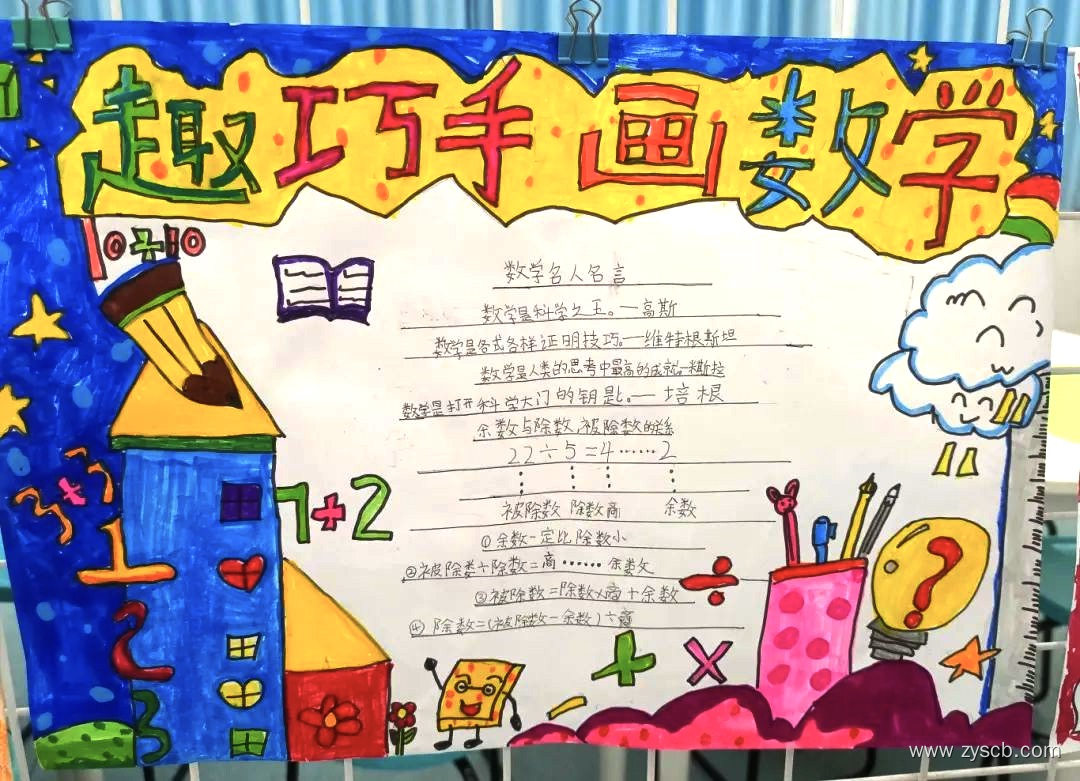 趣巧手画数学
10÷10
数学名人名言
数学是科学之王。—高斯
数学是各式各样证明技巧。—维特根斯坦
数学是人类的思考中最高的成就。—米斯拉
数学是打开科学大门的钥匙。— 培根
余数与除数,被除数的关系
22÷5=4……2
被除数 除数 商 余数
①余数一定比除数小
②被除数÷除数=商……余数
③被除数=除数×商+余数
④除数=(被除数-余数)÷商
3×3
7+2
1
2
3
÷
+
×
?
www.zyscb.com